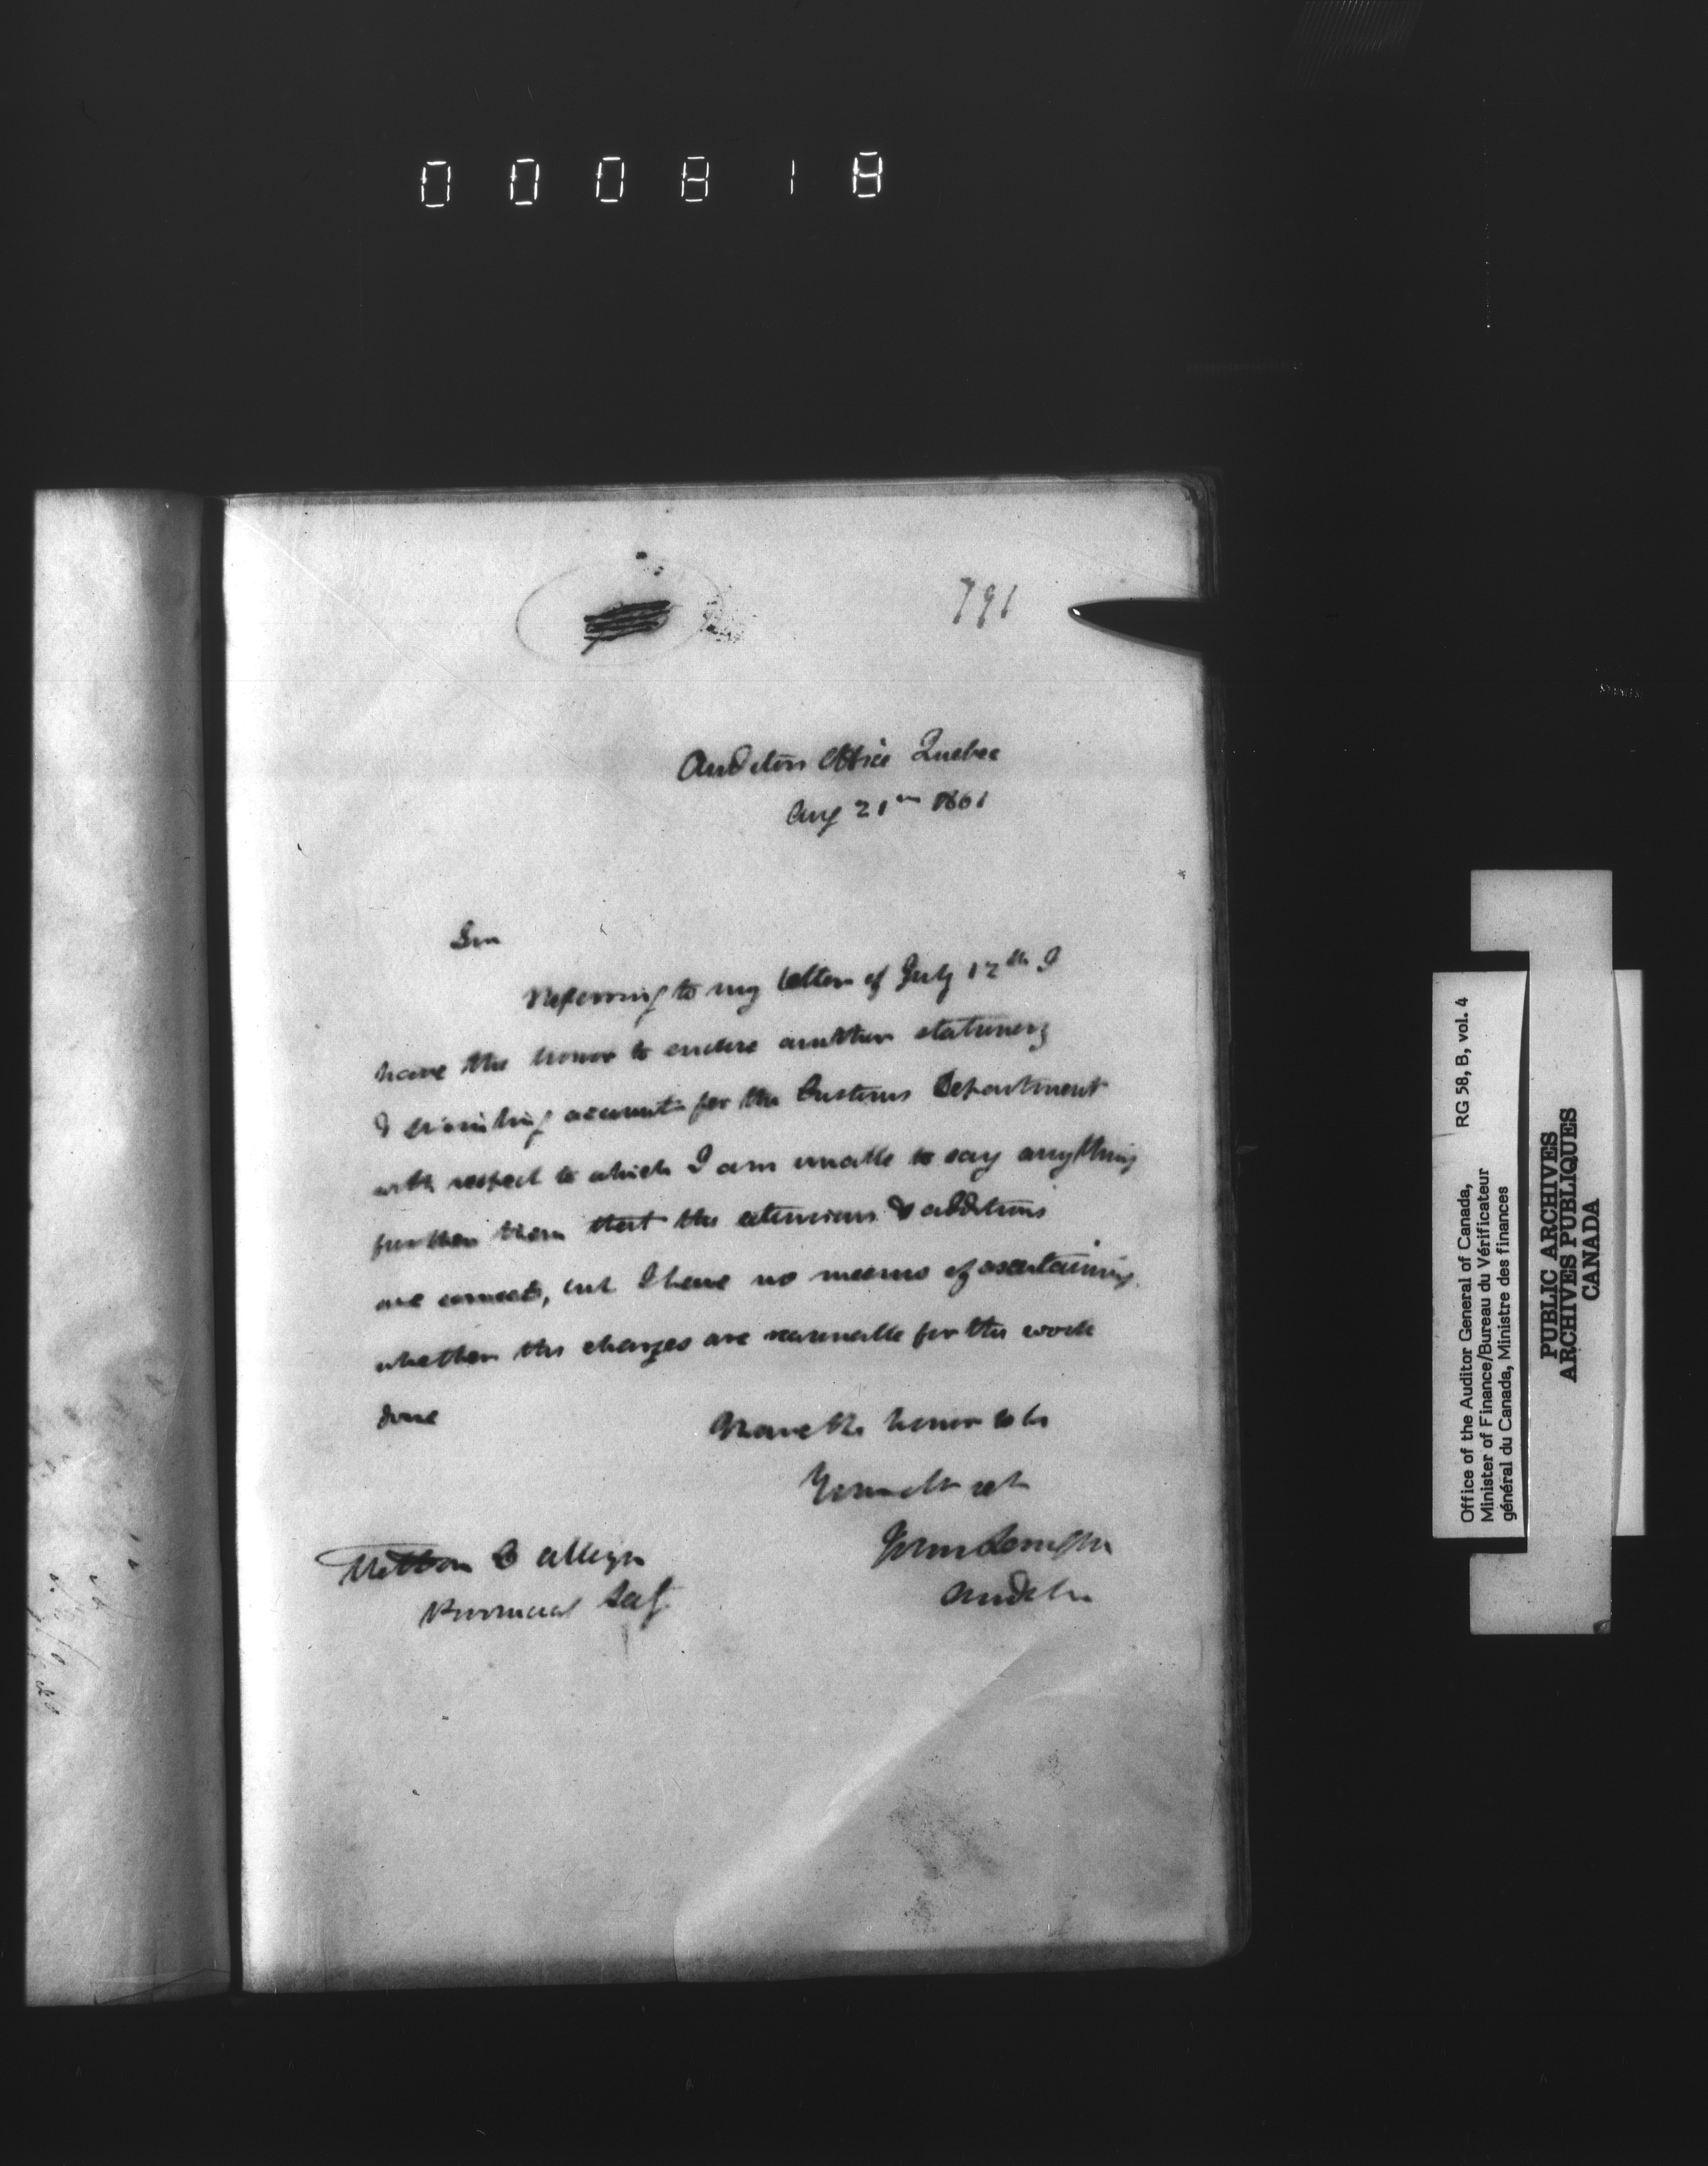 000818
791
Auditors Office Quebec
Aug 21st 1861
Sir
Referring to my letter of July 12th I
have the honor to enclose another stationery
& printing account for the Customs Department
with respect to which I am unable to say anything
further than that the extensions & additions
are correct, but I have no means of ascertaining
whether the charges are reasonable for the work
done
I have the honor to be
Your obt set
John Langton
Auditor
The Hon C Alleyn
Provincial Secy
Office of the Auditor General of Canada, RG 58, B, vol. 4
Minister of Finance/Bureau du Vérificateur
général du Canada, Ministre des finances
PUBLIC ARCHIVES
ARCHIVES PUBLIQUES
CANADA